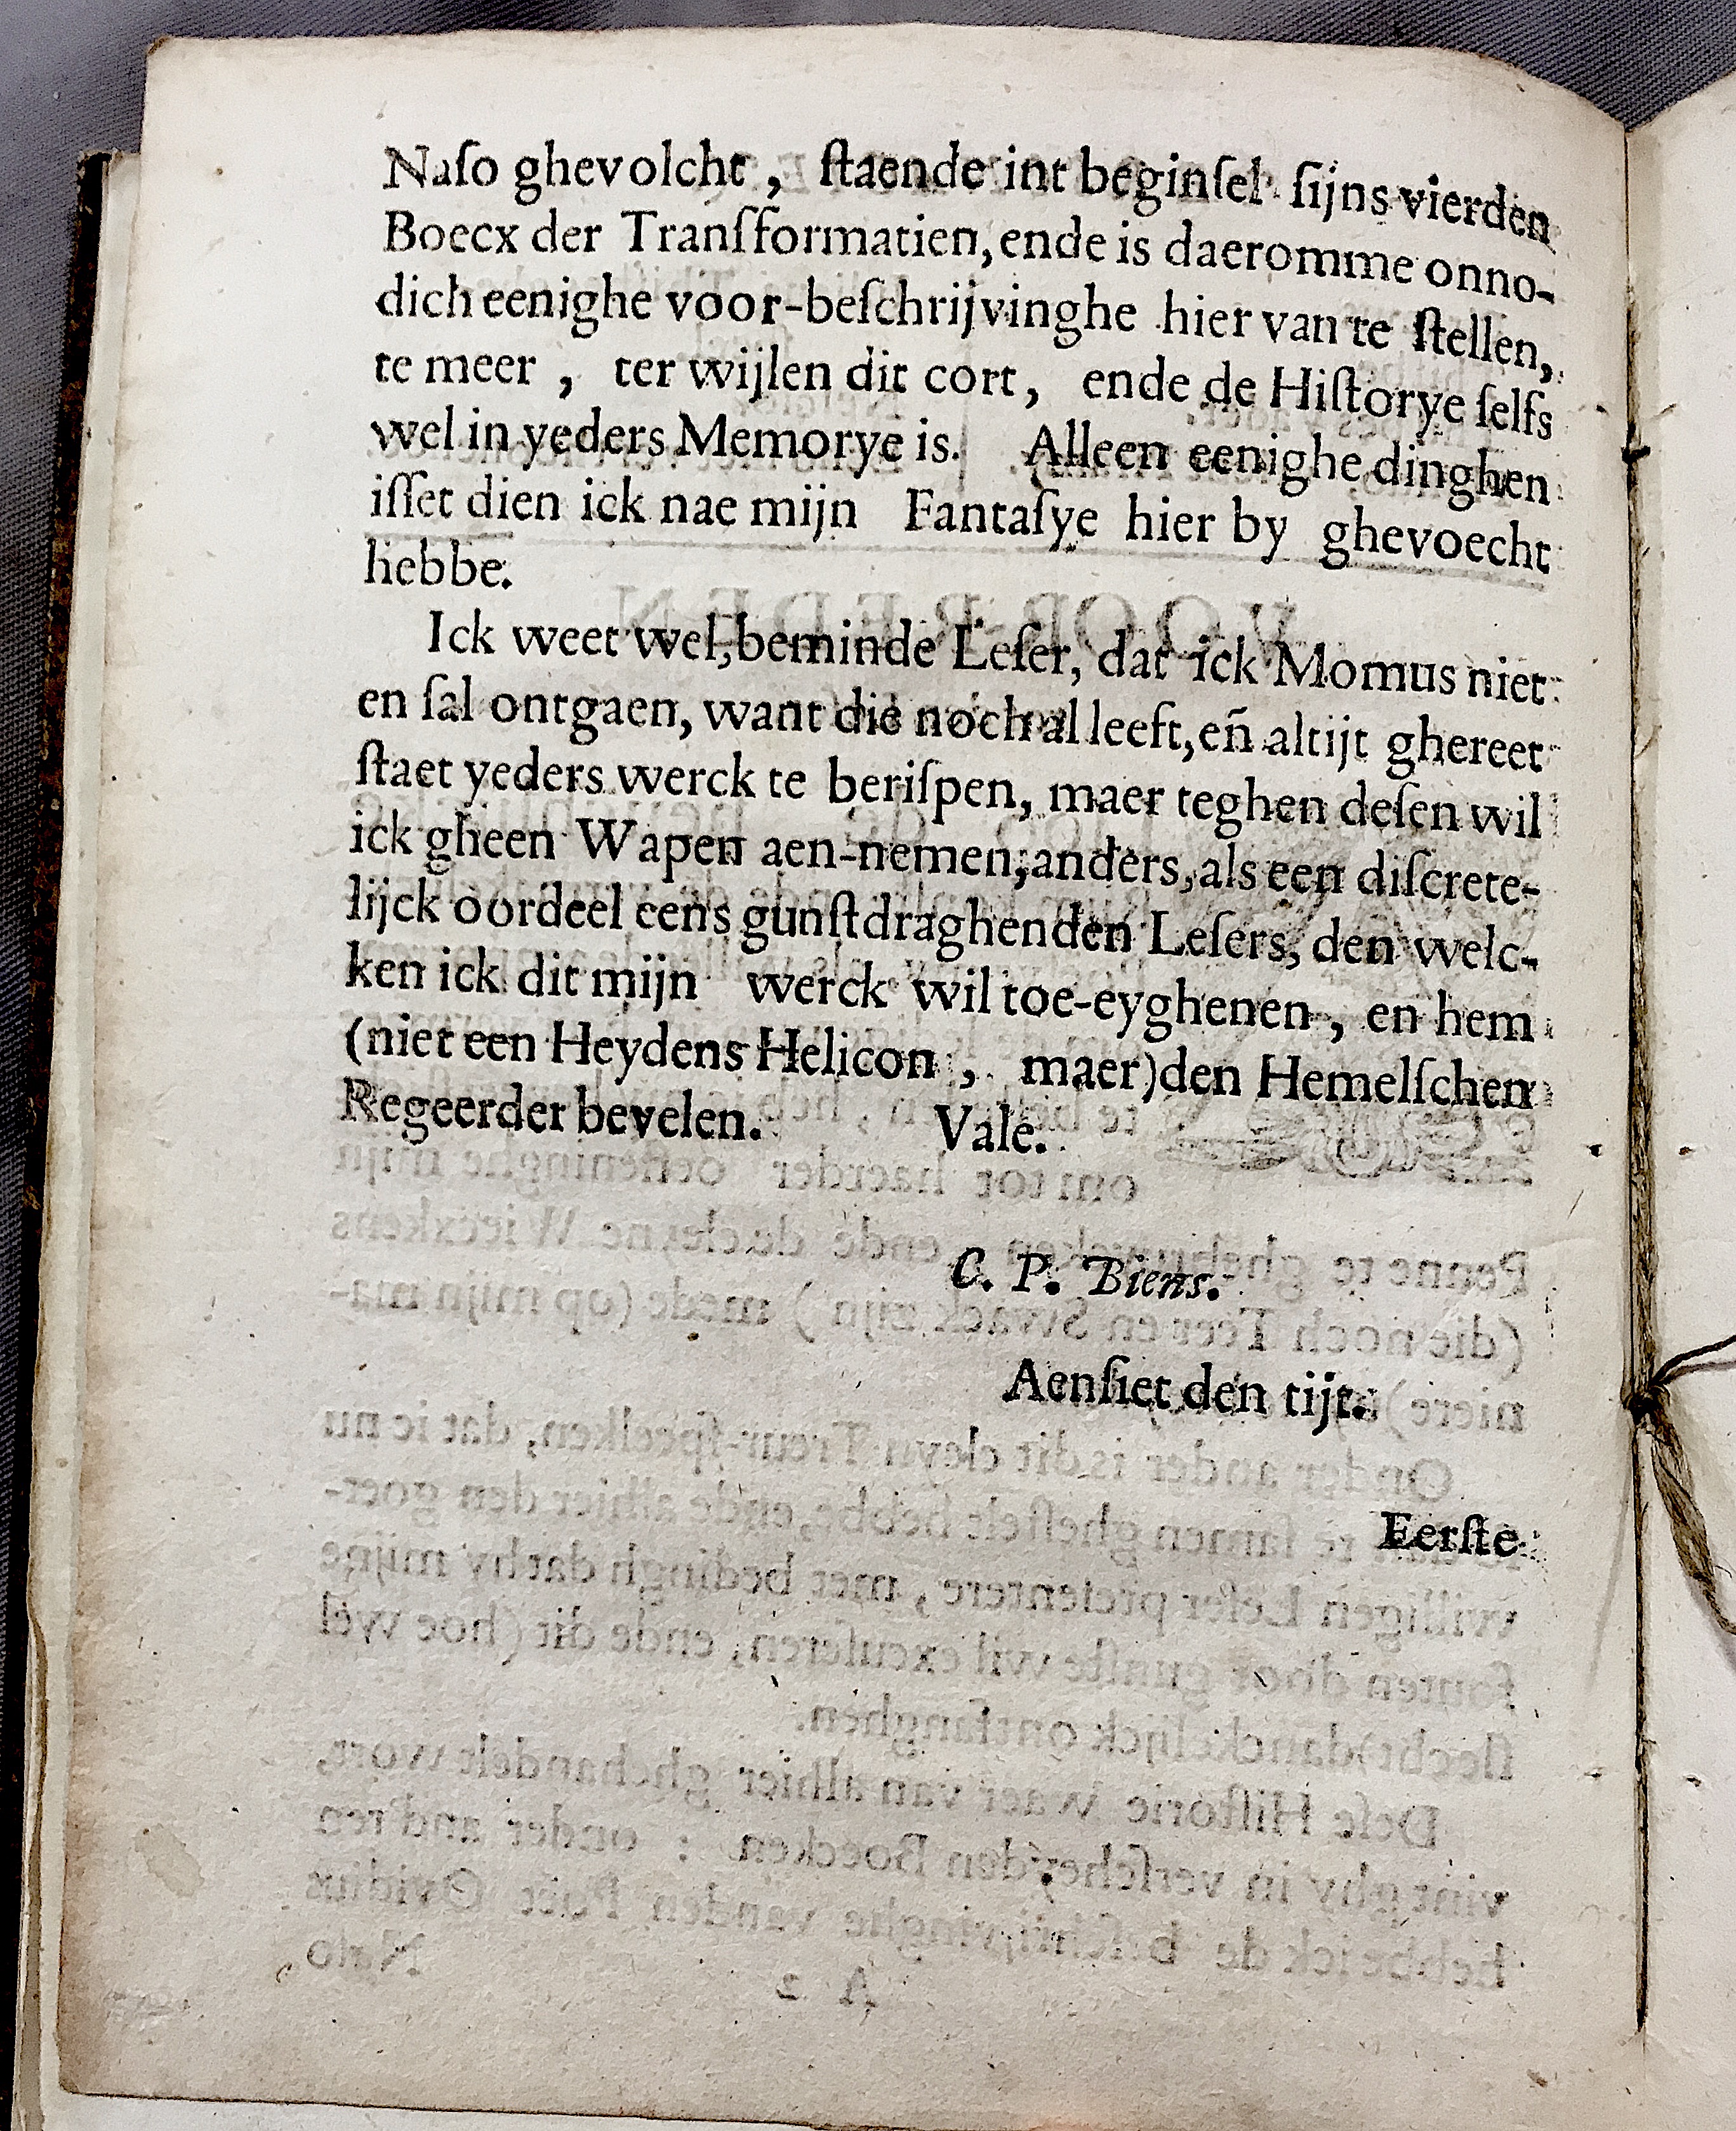 Naſo ghevolcht, ſtaende int beginſel ſijns vierden
Boecx der Tranſformatien, ende is daeromme onno-
dich eenighe voor-beſchrijvinghe hier van te ſtellen,
te meer, ter wijlen dit cort, ende de Hiſtorye ſelfs
wel in yeders Memorye is. Alleen eenighe dinghen
iſſet dien ick nae mijn Fantaſye hier by ghevoecht
hebbe.
Ick weet wel, beminde Leſer, dat ick Momus niet
en ſal ontgaen, want die noch al leeft, en̄ altijt ghereet
ſtaet yeders werck te beriſpen, maer teghen deſen wil
ick gheen Wapen aen-nemen, anders, als een diſcrete-
lijck oordeel eens gunſtdraghenden Leſers, den welc-
ken ick dit mijn werck wil toe-eyghenen, en hem
(niet een Heydens Helicon, maer) den Hemelſchen
Regeerder bevelen. Vale.
C. P. Biens.
Aenſiet den tijt.
Eerſte